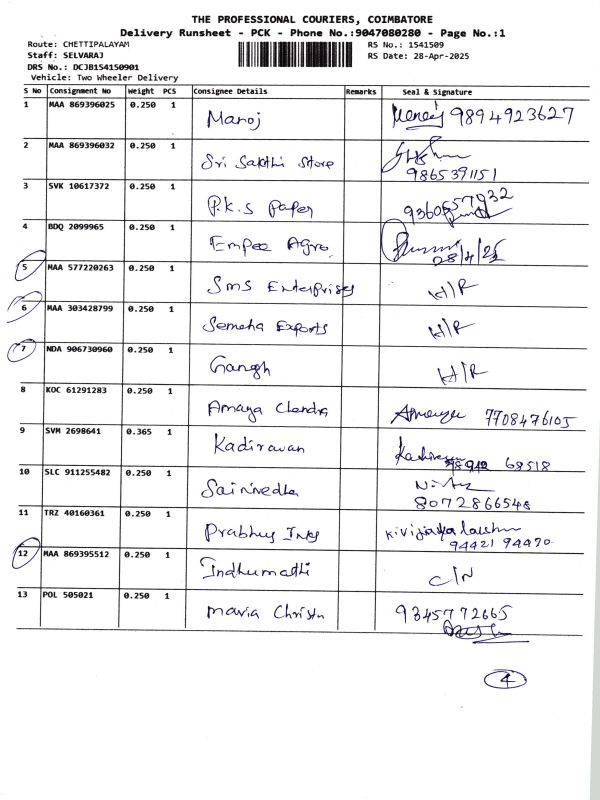 THE PROFESSIONAL COURIERS, COIMBATORE
Delivery Runsheet - PCK - Phone No.:9047080280 - Page No.:1
Route: CHETTIPALAYAM RS No.: 1541509
Staff: SELVARAJ RS Date: 28-Apr-2025
DRS No.: DCJB154150901
Vehicle: Two Wheeler Delivery
S No Consignment No Weight PCS Consignee Details Remarks Seal & Signature
1 MAA 869396025 0.250 1 Manoj 9894923627
2 MAA 869396032 0.250 1 Sri Sakthi Store
9865391151
3 SVK 10617372 0.250 1 P.K.S Paper
4 BDQ 2099965 0.250 1 Empee Agro 28/4/25
5 MAA 577220263 0.250 1 SMS Enterprises H/R
6 MAA 303428799 0.250 1 Semeha Exports H/R
7 NDA 906730960 0.250 1 Gangh H/R
8 KOC 61291283 0.250 1 Amaya Chandra 7708476105
9 SVM 2698641 0.365 1 Kadiravan 68518
10 SLC 911255482 0.250 1 Sainivedha
8072866548
11 TRZ 40160361 0.250 1 Prabhus Inks
94421 94470
12 MAA 869395512 0.250 1 Indhumathi C/N
13 POL 505021 0.250 1 Maria Christu 9345772665
4